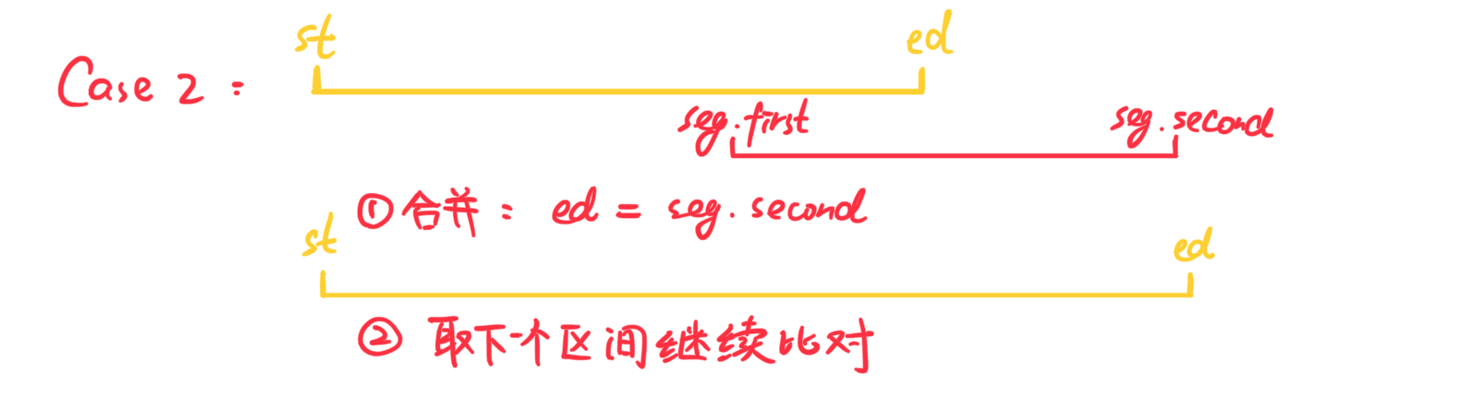 st ed
Case 2 :
seg.first seg.second
①合并： ed = seg.second
st ed
② 取下一个区间继续比对